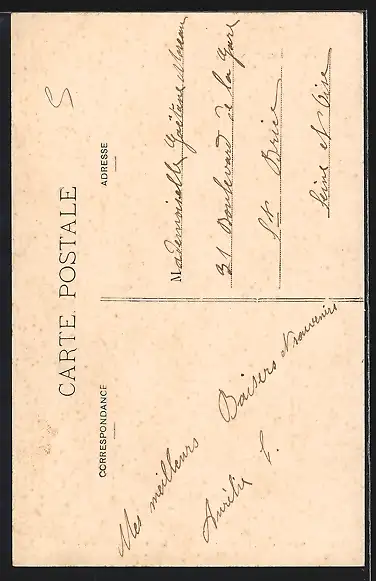 CARTE POSTALE
CORRESPONDANCE
ADRESSE
Mes meilleurs
Baisers et souvenirs
Aurélie L.
Mademoiselle Gaëtane Moreau
31 Boulevard de la Gare
St Brice
Seine et Oise